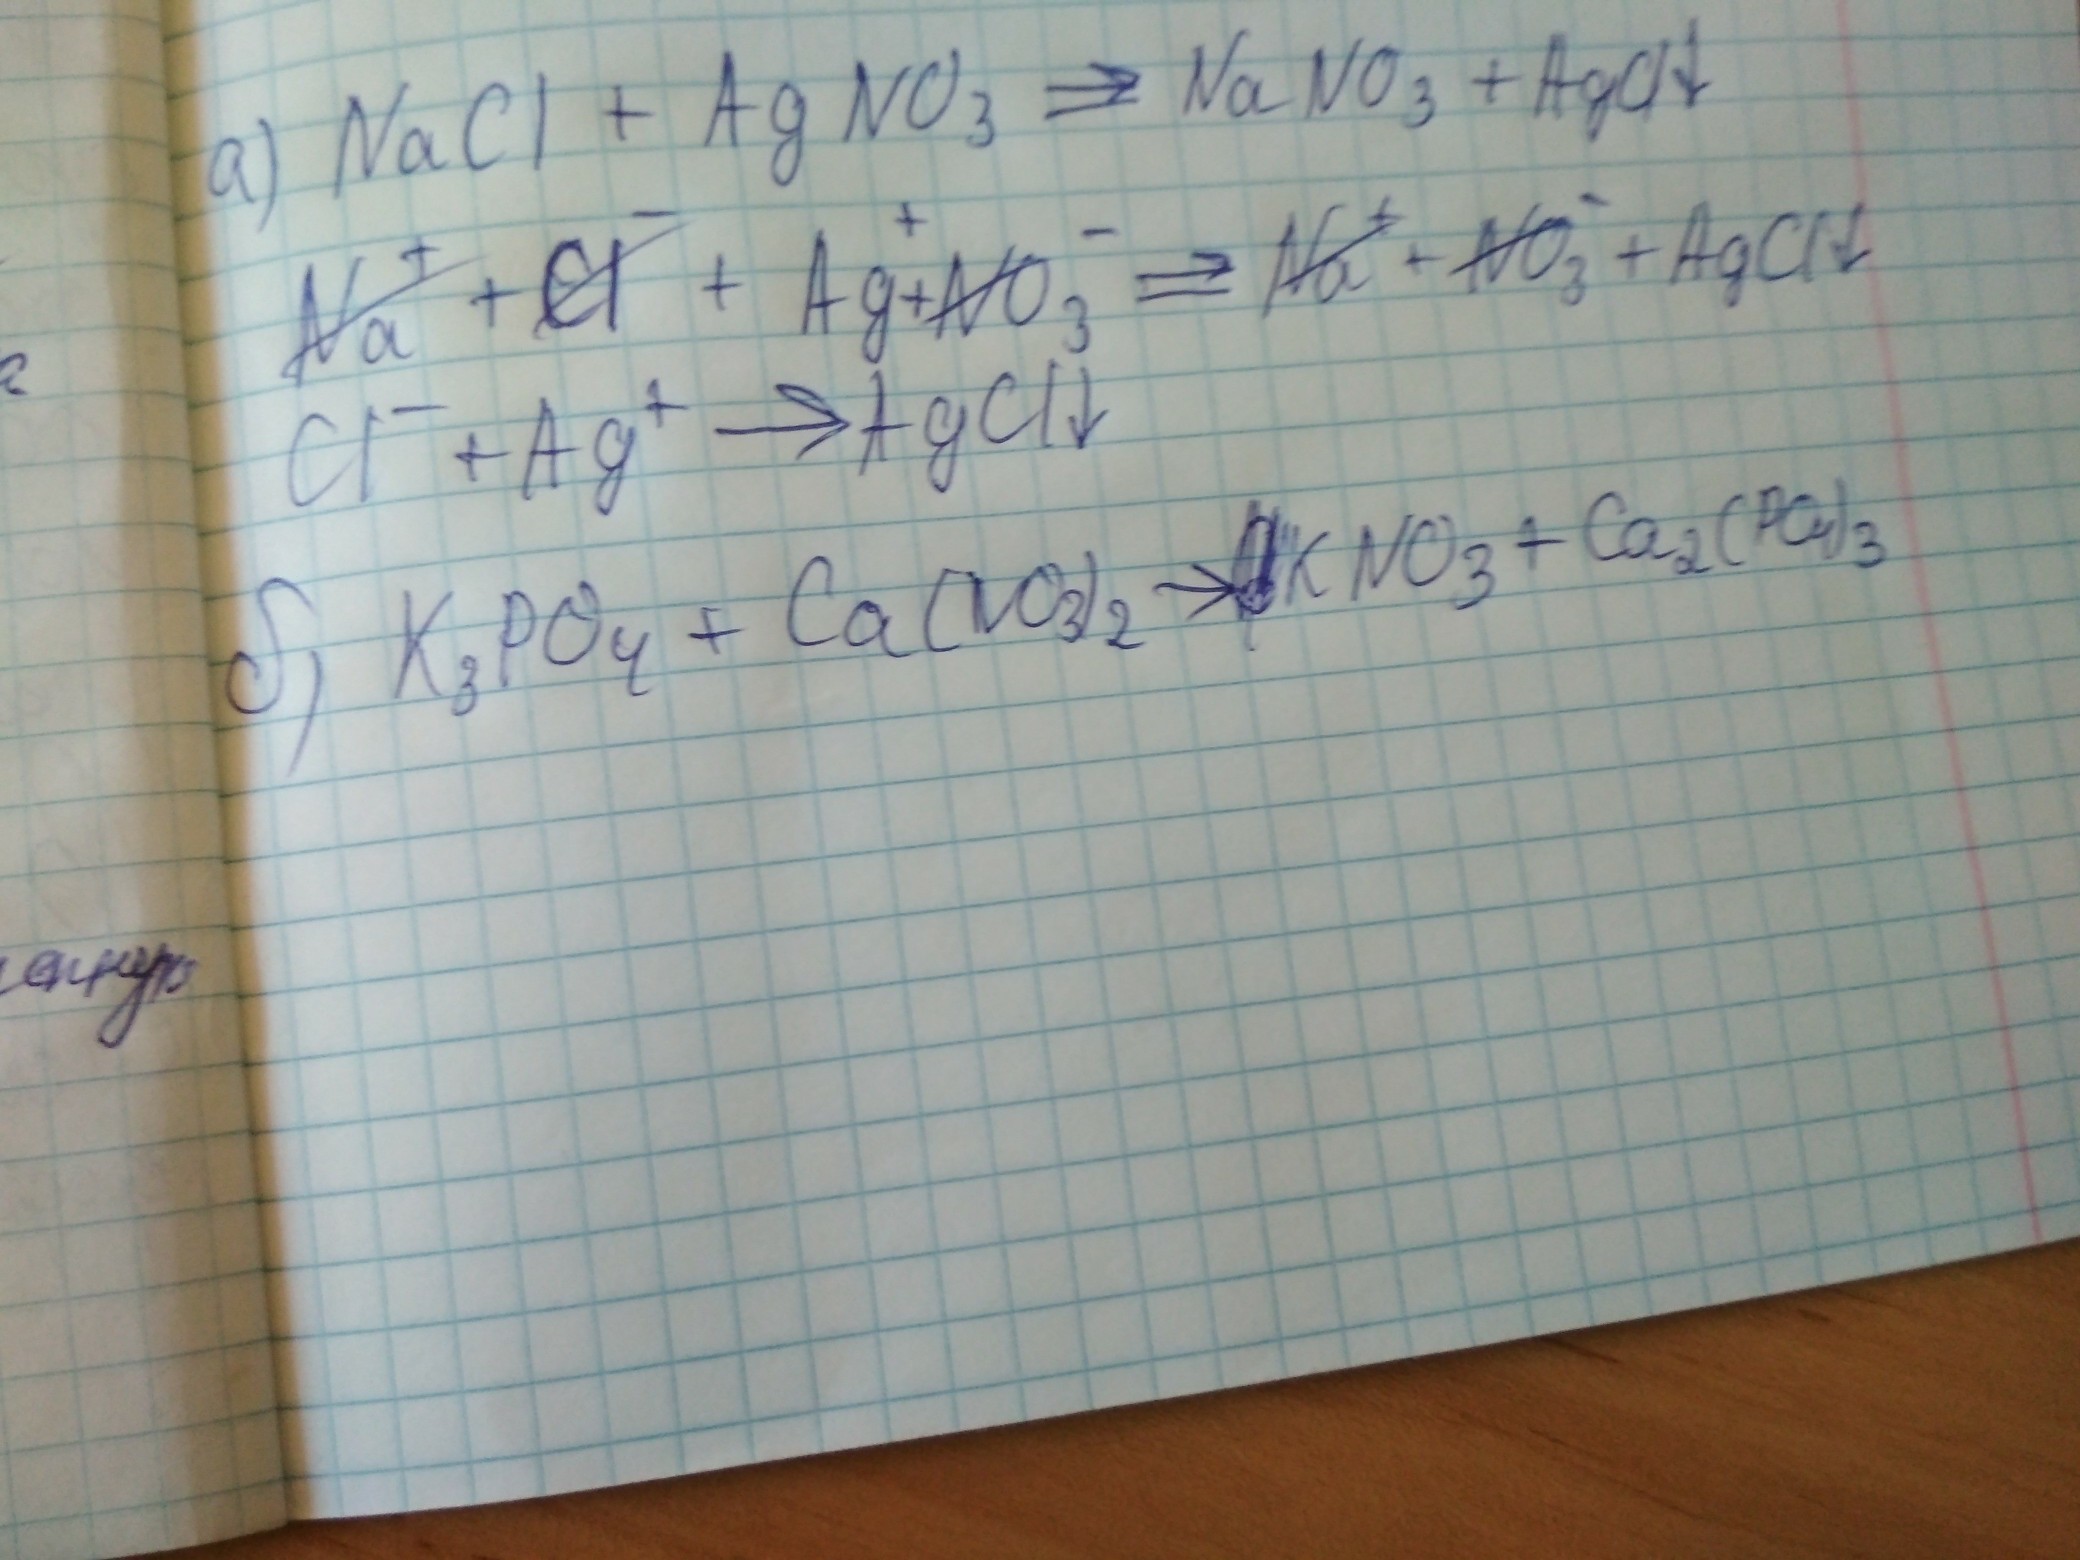 а) NaCl + AgNO₃ ⇒ NaNO₃ + AgCl↓
Na⁺ + Cl⁻ + Ag⁺ + NO₃⁻ ⇒ Na⁺ + NO₃⁻ + AgCl↓
Cl⁻ + Ag⁺ → AgCl↓
б) K₃PO₄ + Ca(NO₃)₂ → KNO₃ + Ca₂(PO₄)₃